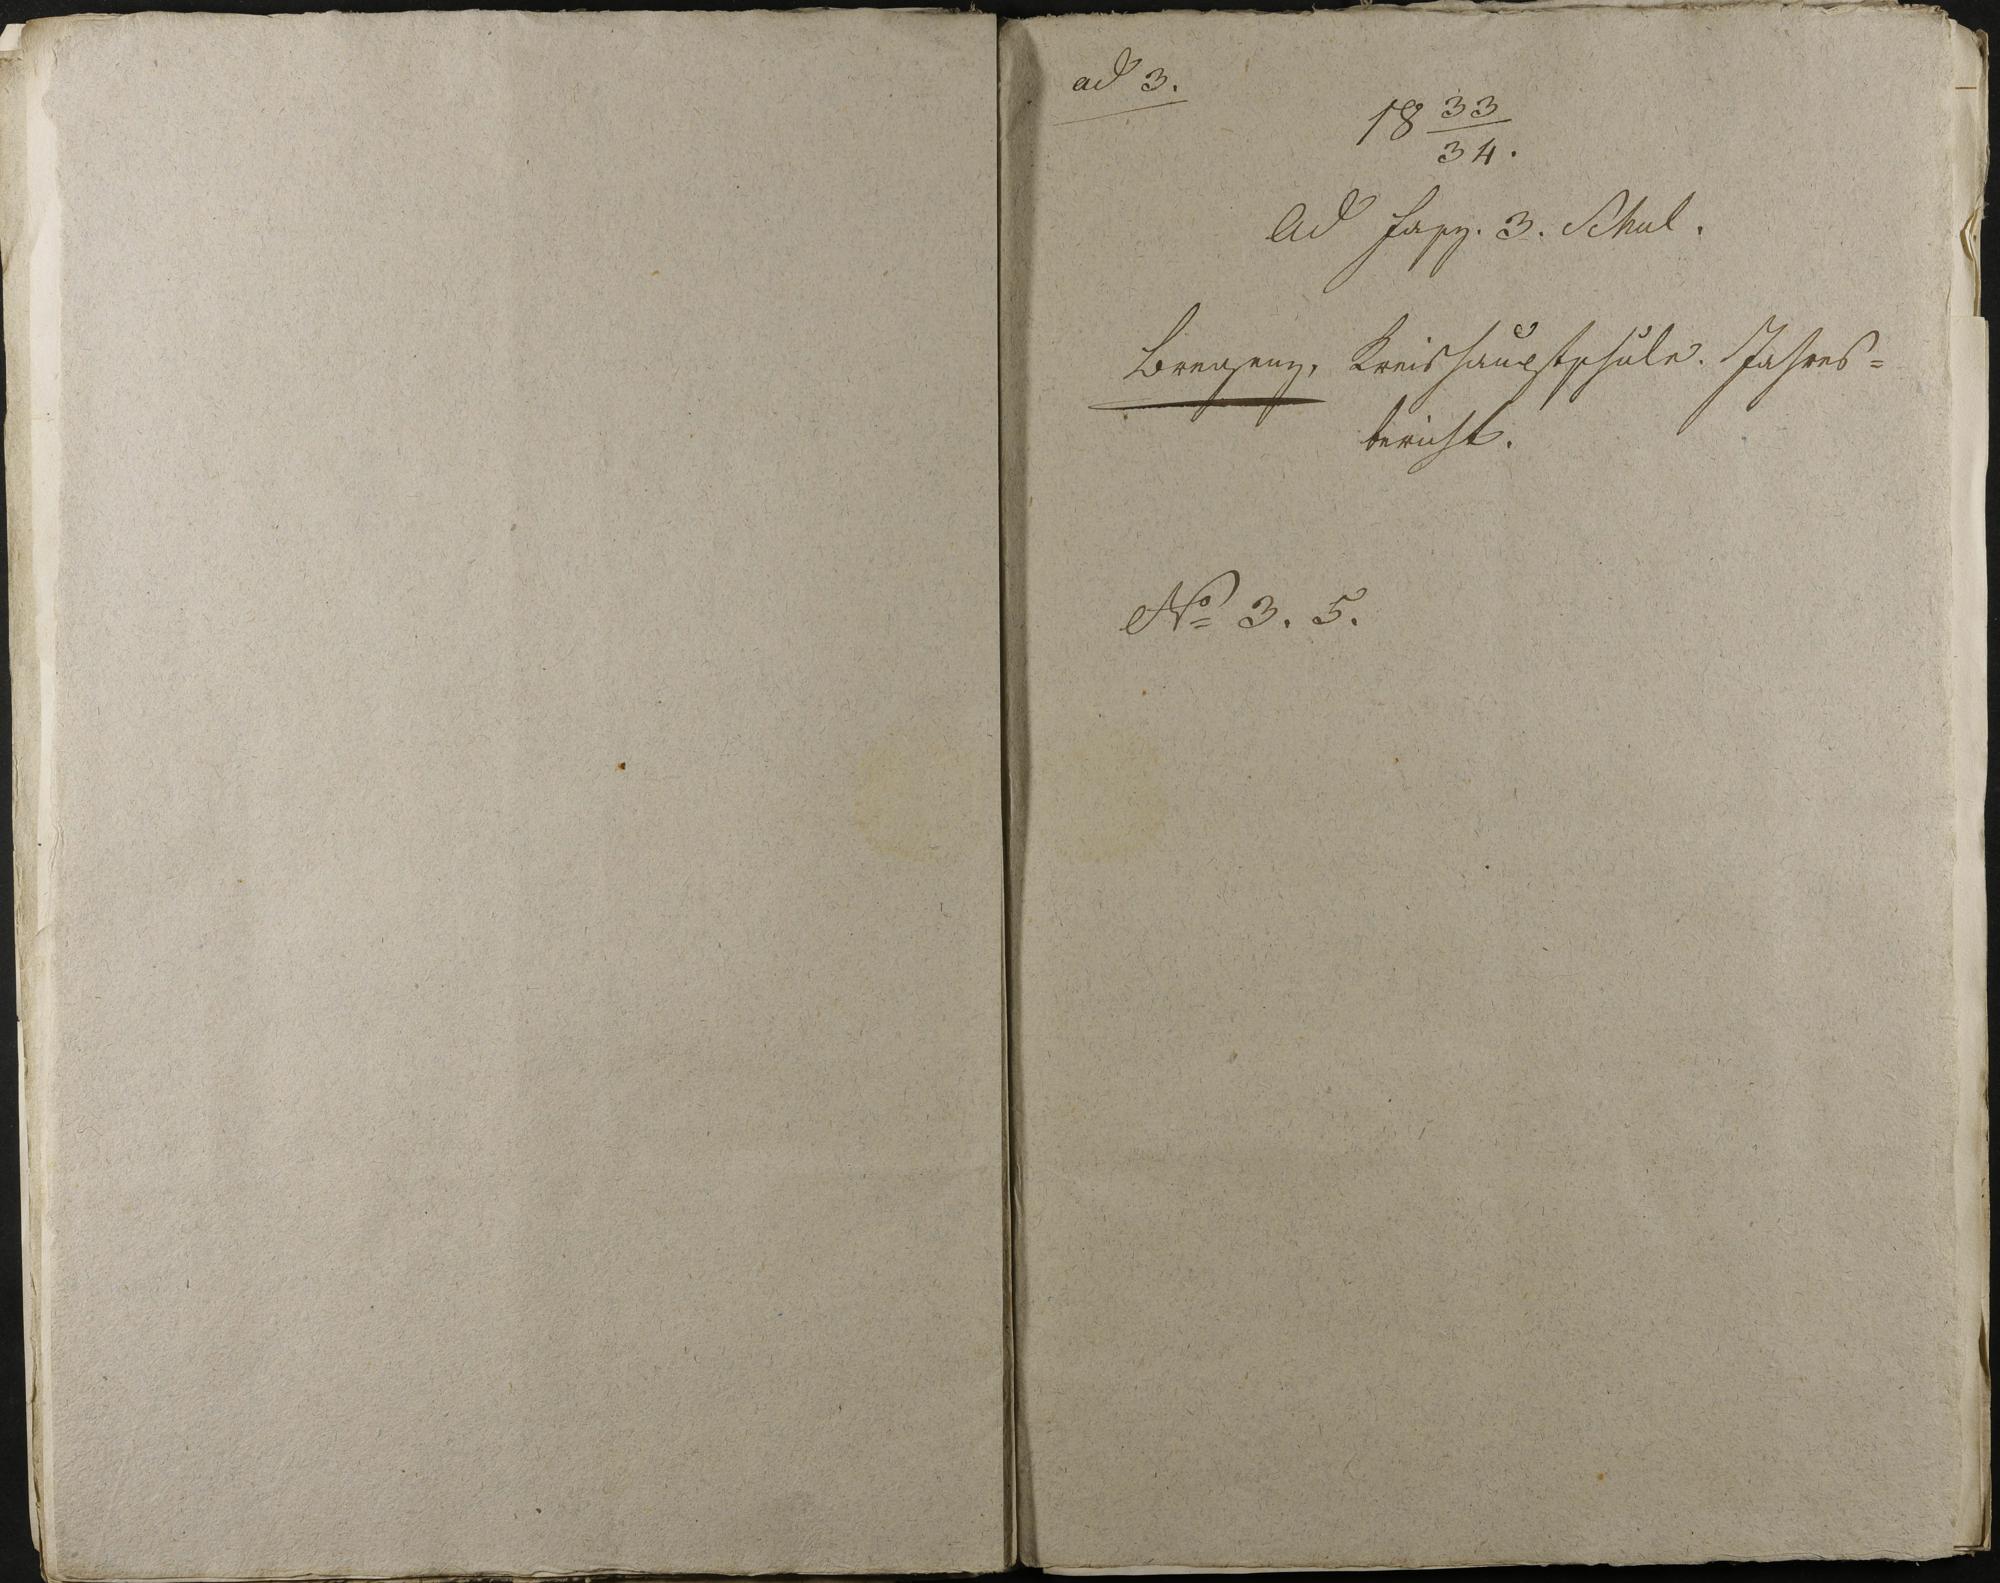 ad 3.
18 33/34.
Ad Fasz. 3. Schul.
Bregenz, Kreishauptschule. Jahres=
bericht.
No 3. 5.